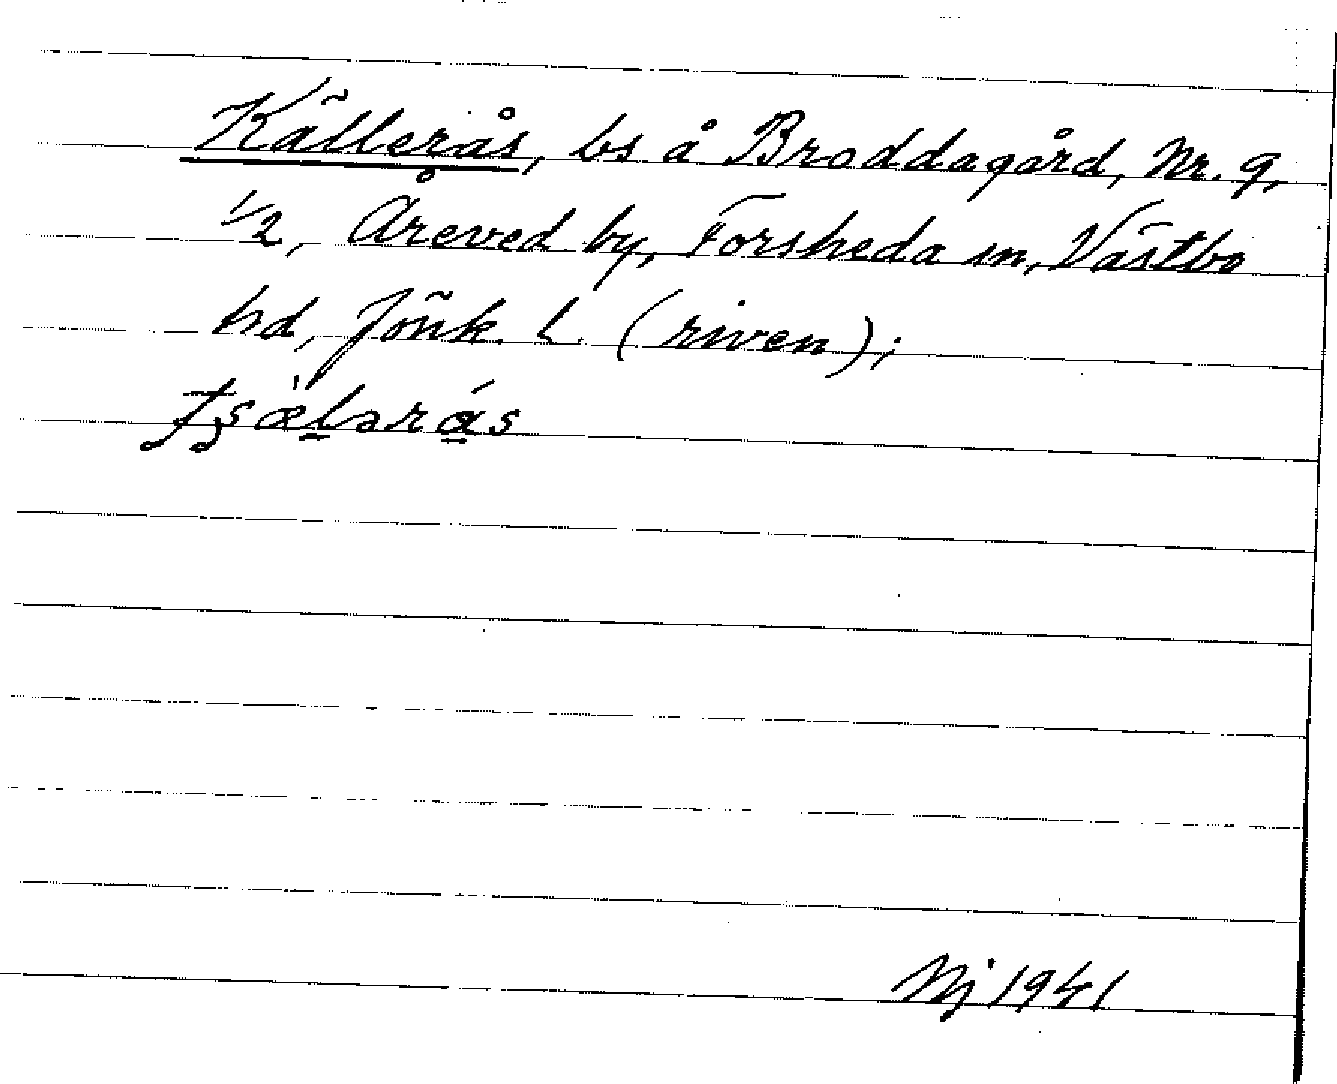 Källerås, bs å Broddagård, Nr. 9,
1/2, Åreved by, Forsheda sn, Västbo
hd, Jönk. L. (riven);
Nj 1941